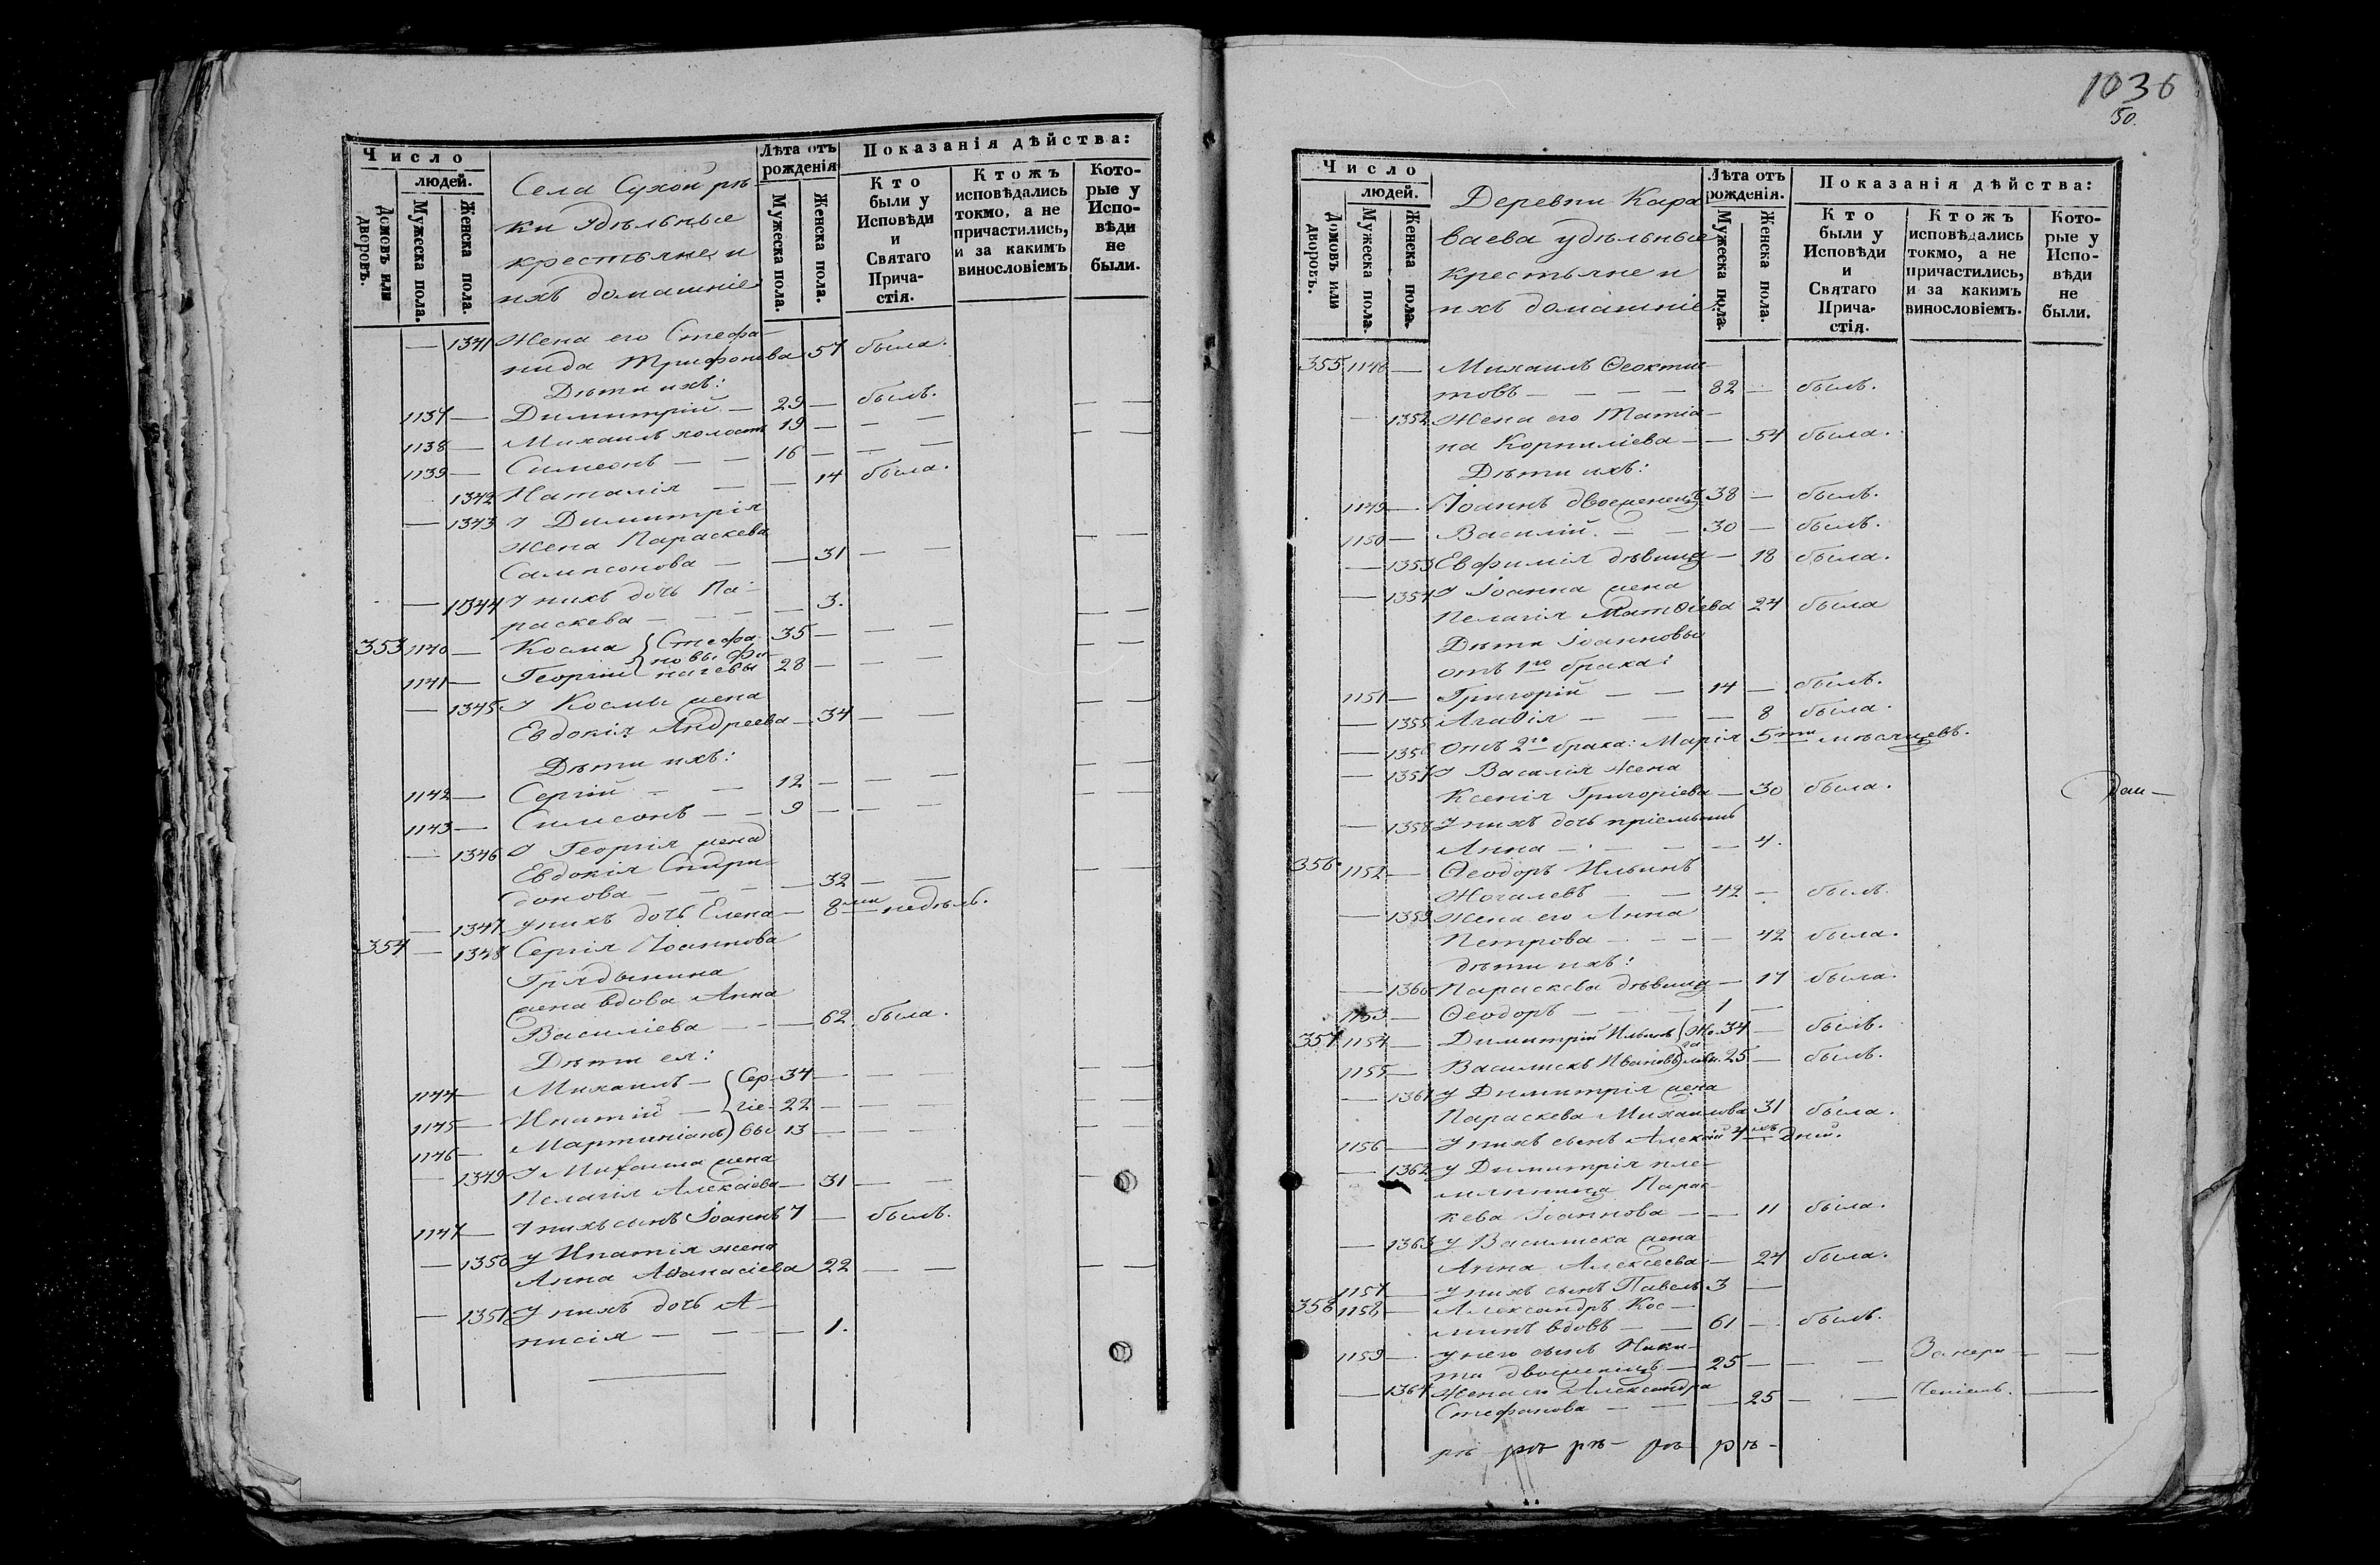 Число
людей.
Домовъ или дворовъ.
Мужеска пола.
Женска пола.
Села Сухой рѣ
ки удѣльные
крестьяне и
ихъ домашніе
Лѣта отъ рожденія
Мужеска пола.
Женска пола.
Показанія дѣйства:
Кто были у Исповѣди и Святаго Причастія.
Ктожъ исповѣдались токмо, а не причастились, и за какимъ винословіемъ
Которые у Исповѣди не были.
— 1341 Жена его Стефа-
нида Трифонова 57 была.
Дѣти ихъ:
1137 — Димитрій — 29 — былъ.
1138 — Михаилъ холостъ 19 — — —
1139 — Симеонъ — — 16 — — —
1342 Наталія — — 14 была.
— 1343 У Димитрія
жена Параскева
Сампсонова — — 31 — —
— 1344 У нихъ дочь Па-
раскева — — — 3.
353 1140 — Косма { Стефа- 35 — — —
новы
1141 — Георгій 28 — — —
— 1345 У Космы жена
Евдокія Андреева — 34 — —
Дѣти ихъ:
1142 — Сергій — — 12 — — —
1143 — Симеонъ — — 9 — — —
— 1346 У Георгія жена
Евдокія Спири-
донова — — — — 32 — —
— 1347 у нихъ дочь Елена — 8ми недѣль.
354 — 1348 Сергія Іоаннова
Грядынина
жена вдова Анна
Василіева — — — 62 была.
Дѣти ея:
1144 — Михаилъ — { Сер- 34 — — —
1145 — Ипатій — гіе- 22 — — —
1146 — Мартиніанъ } вы 13 — — —
— 1349 У Михаила жена
Пелагія Алексіева — 31 — —
1147 — У нихъ сынъ Іоаннъ 7 — былъ.
— 1350 у Ипатія жена
Анна Аѳанасіева 22 — —
— 1351 У нихъ дочь А-
нисія — — — — 1.
1036
50.
Число
людей.
Домовъ или дворовъ.
Мужеска пола.
Женска пола.
Деревни Кара
ваева удѣльные
крестьяне и
ихъ домашніе.
Лѣта отъ рожденія.
Мужеска пола.
Женска пола.
Показанія дѣйства:
Кто были у Исповѣди и Святаго Причастія.
Ктожъ исповѣдались токмо, а не причастились, и за какимъ винословіемъ.
Которые у Исповѣди не были.
355 1148 — Михаилъ Ѳеоктис-
товъ — — — — 82 — былъ.
— 1352 Жена его Татіа-
на Корниліева — — 54 была.
Дѣти ихъ:
1149 — Іоаннъ двоеженецъ 38 — былъ.
1150 — Василій. — — 30 — былъ.
— 1353 Евфимія дѣвица — 18 была.
— 1354 У Іоанна жена
Пелагія Матѳіева 24 была
Дѣти Іоанновы
отъ 1го брака:
1151 — Григорій — — 14 — былъ.
— 1355 Агаѳія — — — 8 была.
— 1356 Отъ 2го брака: Марія 5ти мѣсяцевъ.
— 1357 У Василія жена
Ксенія Григоріева — 30 была.
— 1358 У нихъ дочь пріемышъ
Анна — — — — 4.
356 1152 — Ѳеодоръ Ильинъ
42 — былъ.
— 1359 Жена его Анна
Петрова — — — — 42 была.
дѣти ихъ:
— 1360 Параскева дѣвица — 17 была.
1153 — Ѳеодоръ — — — 1 —
357 1154 — Димитрій Ильинъ 34 — былъ.
1155 — Василискъ Ивановъ 25 — былъ.
— 1361 у Димитрія жена
Параскева Михаилова 31 была.
1156 — У нихъ сынъ Алексій дней.
— 1362 у Димитрія пле-
мянница Парас-
кева Іоаннова — — 11 была.
— 1363 у Василиска жена
Анна Алексеева — 24 была.
1157 — у нихъ сынъ Павелъ 3 —
358 1158 — Александръ Кос-
минъ вдовъ — — 61 — былъ.
1159 — у него сынъ Ники-
та двоеженецъ — 25 — — — За нера —
— 1364 Жена его Александра
Стефанова — — — 25 — — —
рѣ рѣ рѣ рѣ рѣ